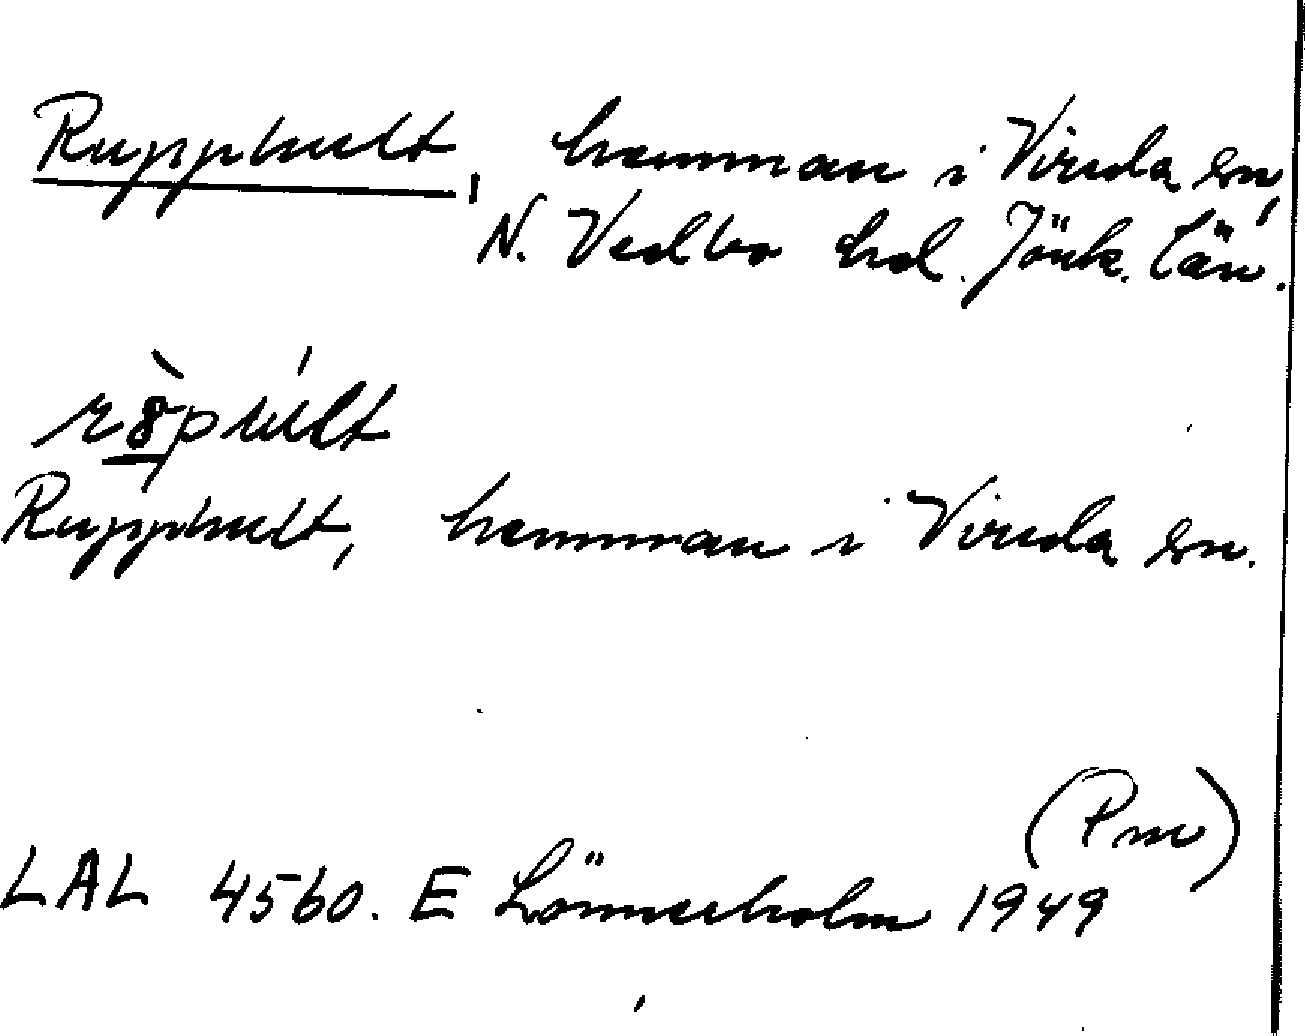 Rupphult, hemman i Vireda sn,
N. Vedbo hd. Jönk. län.
r8̀phúlt
Rupphult, hemman i Vireda sn.
(Pm)
LAL 4560. E Lönnerholm 1949